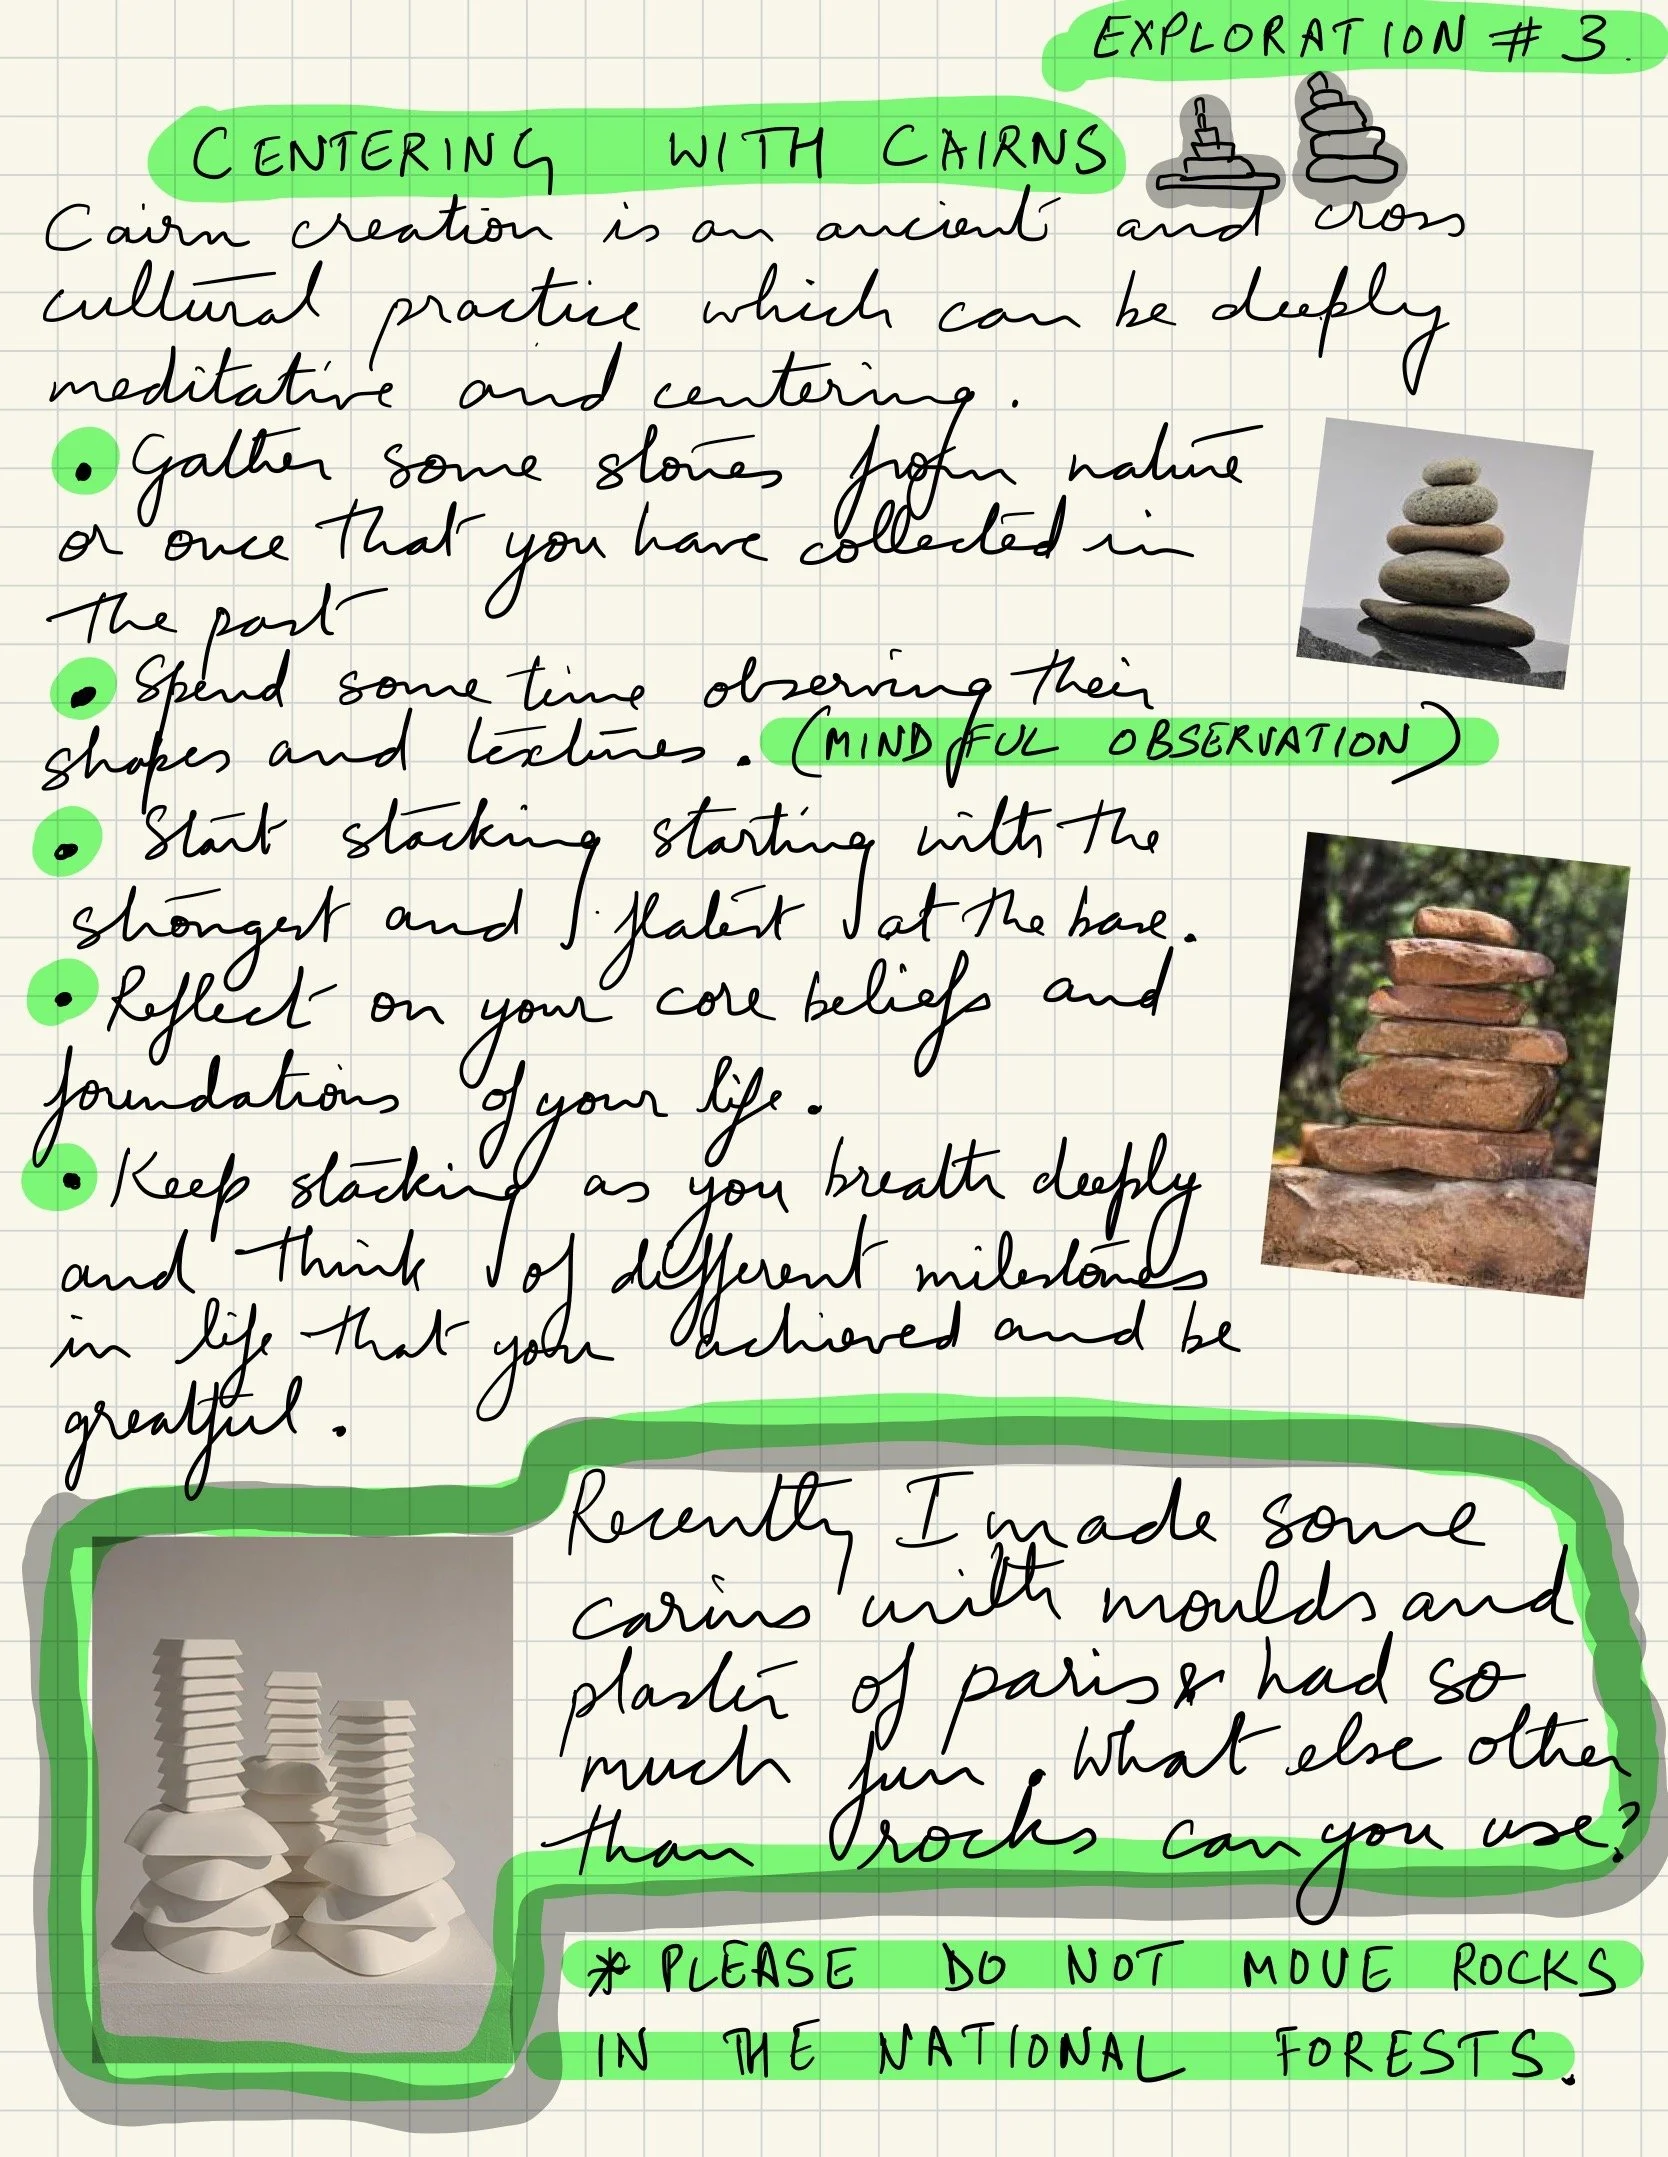 EXPLORATION # 3.
CENTERING WITH CAIRNS
Cairn creation is an ancient and cross
cultural practice which can be deeply
meditative and centering.
• Gather some stones from nature
or once that you have collected in
the past
• Spend some time observing their
shapes and textures. (MINDFUL OBSERVATION)
• Start stacking starting with the
strongest and flatest at the base.
• Reflect on your core beliefs and
foundations of your life.
• Keep stacking as you breath deeply
and think of different milestones
in life that you achieved and be
greatful.
Recently I made some
carins with moulds and
plaster of paris & had so
much fun. What else other
than rocks can you use?
* PLEASE DO NOT MOVE ROCKS
IN THE NATIONAL FORESTS.